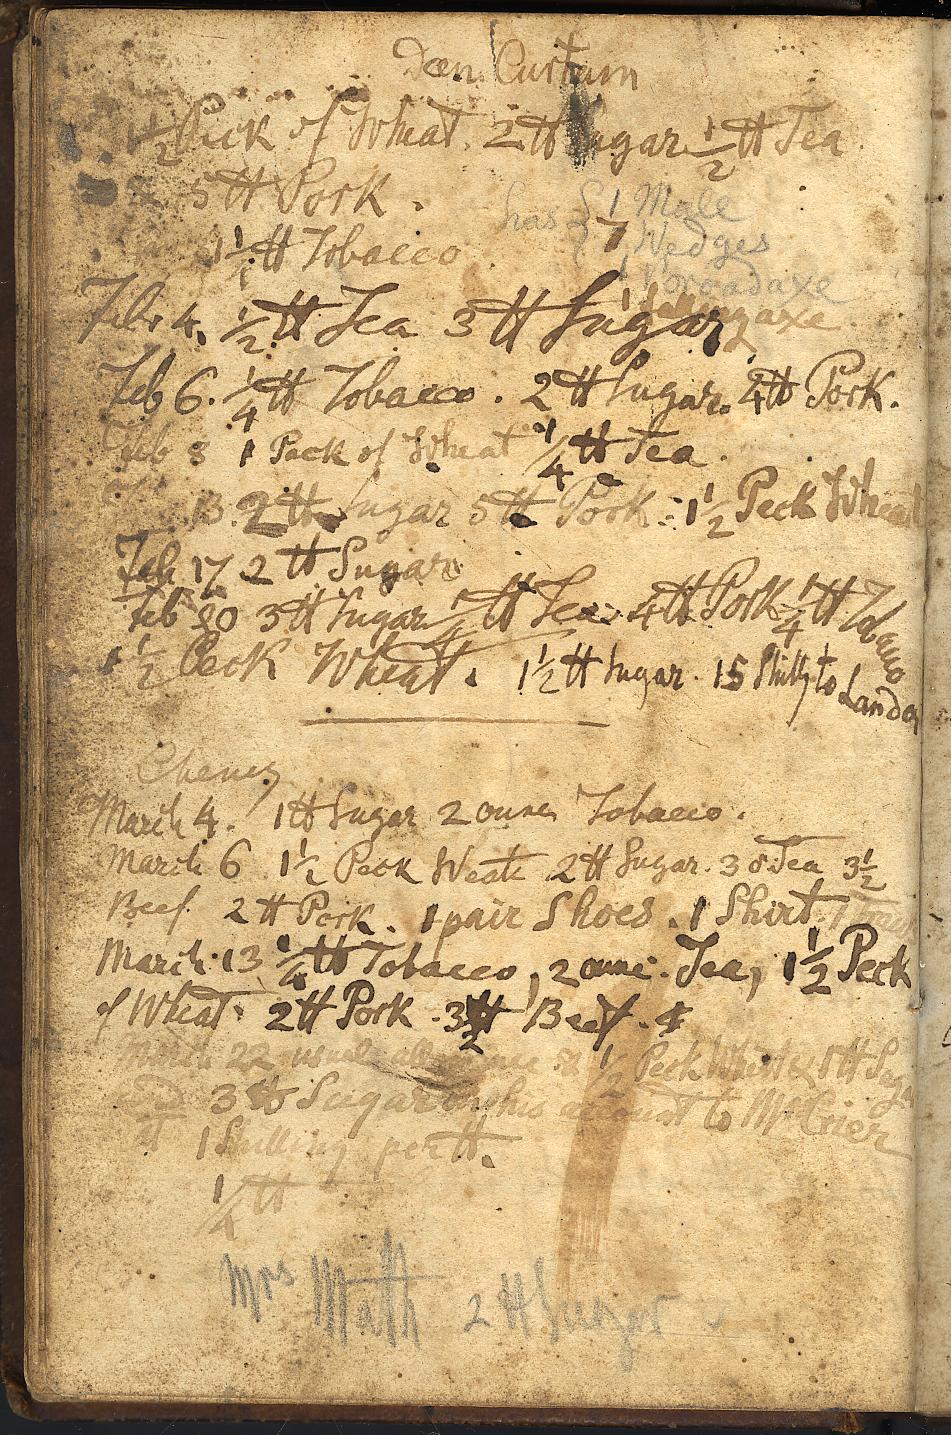 Dan Curtain
1½ Peck of Wheat. 2 ℔ Sugar ½ ℔ Tea
5 ℔ Pork.
has { 1 Male
7 Wedges
1 Broadaxe
1¼ ℔ Tobacco
axe
Feb. 4. ½ ℔ Tea 3 ℔ Sugar
Feb 6. ¼ ℔ Tobacco. 2 ℔ Sugar. 4 ℔ Pork.
Feb 8 1 Peck of Wheat ¼ ℔ Tea.
13. 2 ℔ Sugar 5 ℔ Pork 1½ Peck Wheat
Feb 17 2 ℔ Sugar
Feb 20 3 ℔ Sugar ¼ ℔ Tea. 4 ℔ Pork ¼ ℔ Tobacco
1½ Peck Wheat. 1½ ℔ Sugar. 15 to Landon
Cheney
March 4. 1 ℔ Sugar 2 ounces Tobacco.
March 6 1½ Peck Weate 2 ℔ Sugar. 3 o Tea 3½
Beef. 2 ℔ Pork. 1 pair Shoes. 1 Shirt. 1
March 13 ¼ ℔ Tobacco, 2 ounc. Tea, 1½ Peck
of Wheat. 2 ℔ Pork. 3½ Beef.
March 22 usual allowance ½ Peck Wheat & 1 ℔ Sugar
and 3 ℔ Sugar on his account to Mr Crier
at 1 Shilling per ℔.
¼ ℔
Mrs Math 2 ℔ Sugar